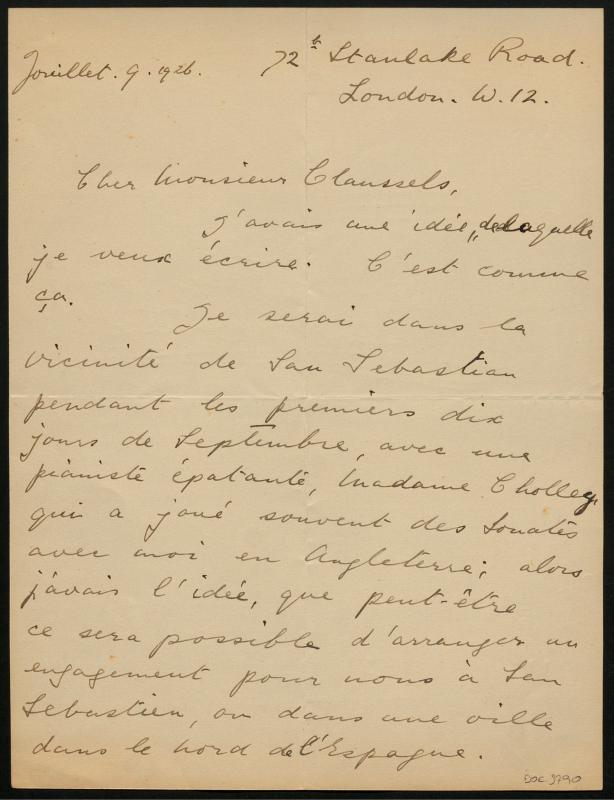 Jouillet. 9. 1926. 72b Stanlake Road.
London. W. 12.
Cher Monsieur Claussels,
J'avais une idée, de laquelle
je veux écrire. C'est comme
ça.
Je serai dans la
vicinité de San Sebastian
pendant les premiers dix
jours de Septembre, avec une
pianiste épatante, Madame Cholley,
qui a joué souvent des Sonates
avec moi en Angleterre; alors
j'avais l'idée, que peut-être
ce sera possible d'arranger un
engagement pour nous à San
Sebastien, ou dans une ville
dans le nord de l'Espagne.
DOC 9790